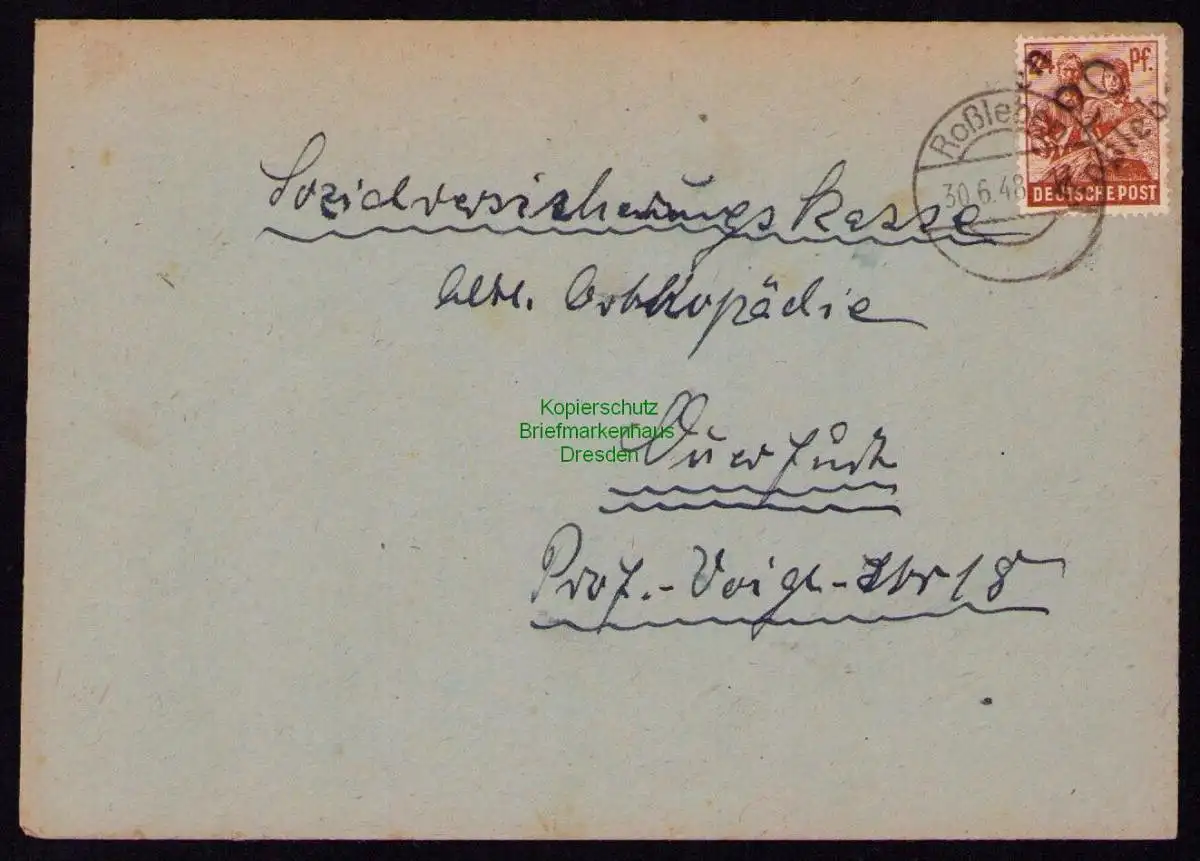 24 Pf.
DEUTSCHE POST
Roßleben
30.6.48
Sozialversicherungskasse
Orthopädie
Kopierschutz
Briefmarkenhaus
Dresden
Querfurt
Prof.-Voigt-Str 18